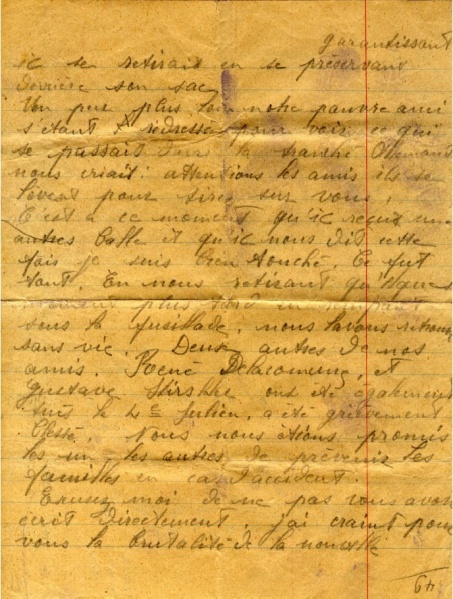 garantissant
il se retirait en se préservant
derrière son sac
Un peu plus loin notre pauvre ami
s'étant redressé pour voir ce qui
se passait dans la tranché
nous criait: attentions les amis ils se
lèvent pour tirer sur vous,
C'est a ce moment qu'il reçut une
autres balle et qu'il nous dit cette
fois je suis bien touché. Ce fut
tout. En nous retirant quelques
plus tard en
sous la fusillade, nous lavons retrouvé
sans vie. Deux autres de nos
amis. René et
Gustave ont été également
tués le Lt Julien, a été grièvement
blessé. Nous nous étions promis
les un les autres de prévenir les
familles en cas d'accident.
Exusez moi de ne pas vous avoir
écrit directement, j'ai craint pour
vous la brutalité de la nouvelle